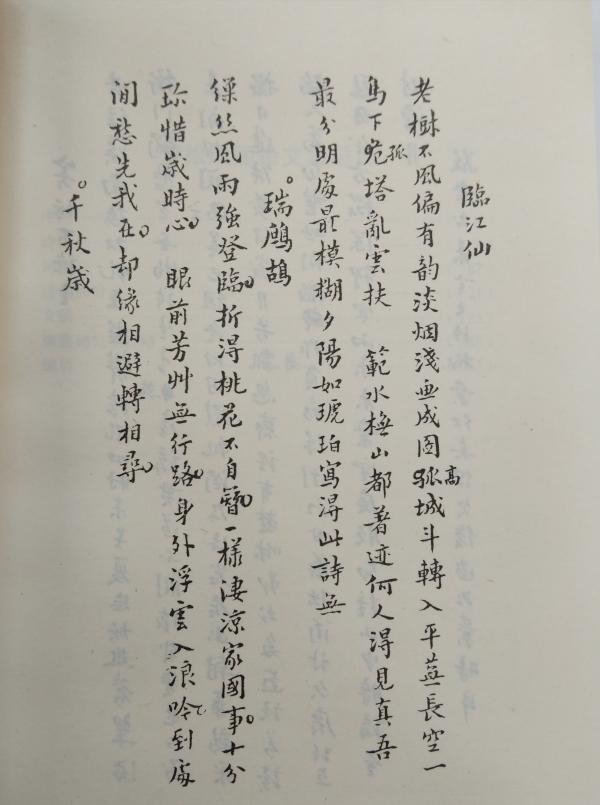 臨江仙
老樹不風偏有韵淡烟淺画成圖孤高城斗轉入平蕪長空一
鳥下危孤塔亂雲扶　範水橅山都著迹何人得見真吾
最分明處最模糊夕陽如琥珀寫得此詩無
。瑞鷓鴣
繅絲風雨強登臨。折得桃花不自簪。一樣淒涼家國事。十分
珍惜歲時心。　眼前芳艸無行路。身外浮雲入浪吟。到處
閒愁先我在。却緣相避轉相尋。
。千秋歲